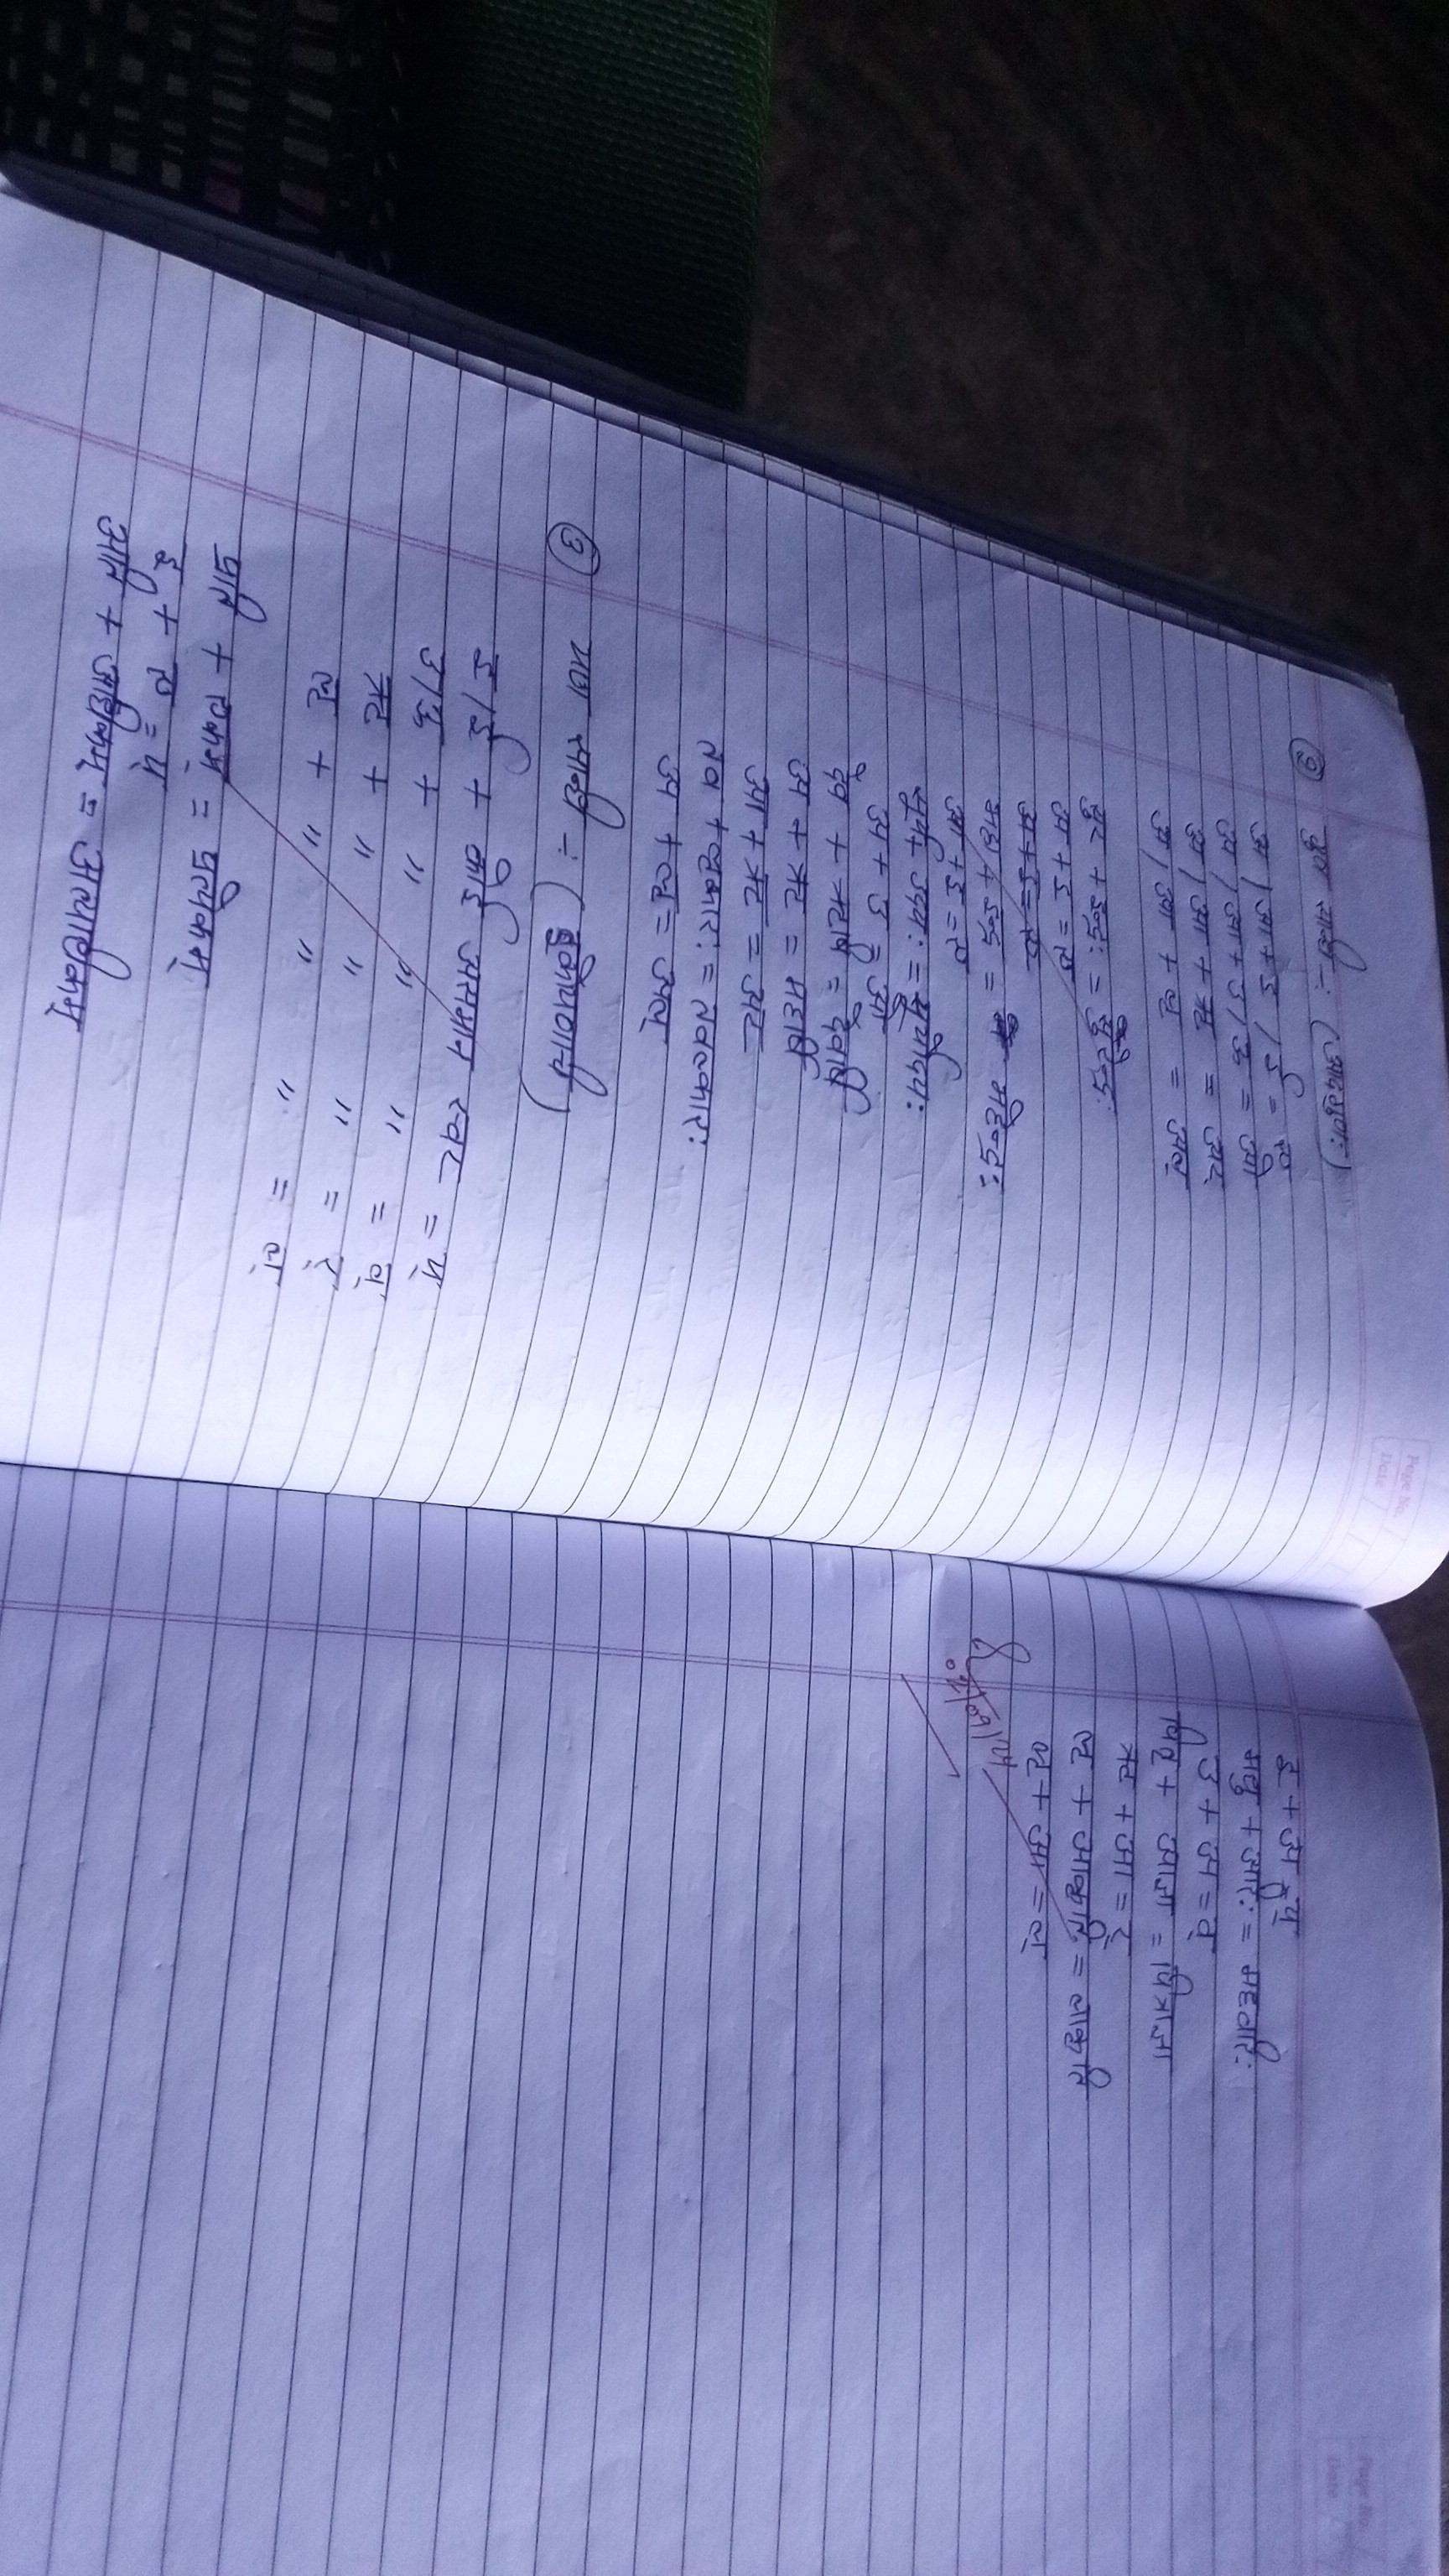 ② गुण सन्धि :- (आदगुणः)
अ / आ + इ / ई = ए
अ / आ + उ / ऊ = ओ
अ / आ + ऋ = अर
अ / आ + लृ = अल्
सुर + इन्द्रः = सुरेन्द्रः
अ + इ = ए
महा + इन्द्र = महेन्द्रः
आ + इ = ए
सूर्य + उदयः = सूर्योदयः
अ + उ = ओ
देव + ऋषि = देवर्षि
अ + ऋ = महर्षि
आ + ऋ = अर
तव + लृकारः = तवल्कारः
अ + लृ = अल्
③ यण सन्धि ÷ (इकोयणचि)
इ / ई + कोई असमान स्वर = य्
उ / ऊ + " " " = व्
ऋ + " " " = र्
लृ + " " " = ल्
प्रति + एकम् = प्रत्येकम्
इ + ए = य्
अति + अधिकम् = अत्याधिकम्
इ + अ = य्
मधु + अरिः = मध्वरिः
उ + अ = व्
पितृ + आज्ञा = पित्राज्ञा
ऋ + आ = र्
लृ + आकृति = लाकृति
लृ + आ = ल्